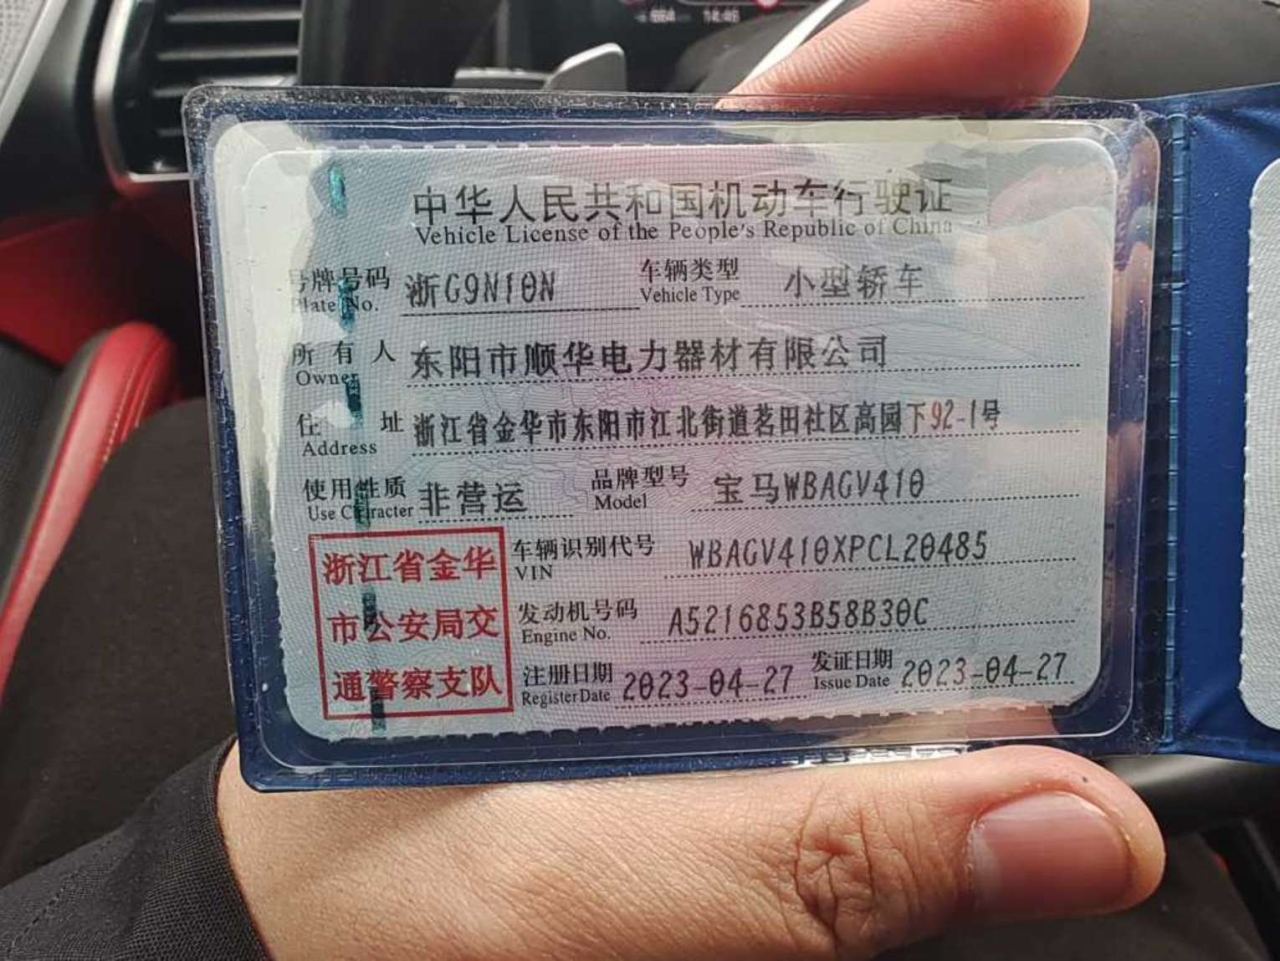 中华人民共和国机动车行驶证
Vehicle License of the People's Republic of China
号牌号码 浙G9N10N 车辆类型 小型轿车
Plate No. Vehicle Type
所有人 东阳市顺华电力器材有限公司
Owner
住址 浙江省金华市东阳市江北街道茗田社区高园下92-1号
Address
使用性质 非营运 品牌型号 宝马WBAGV410
Use Character Model
浙江省金华
市公安局交
通警察支队
车辆识别代号 WBAGV410XPCL20485
VIN
发动机号码 A5216853B58B30C
Engine No.
注册日期 2023-04-27 发证日期 2023-04-27
Register Date Issue Date
14:46